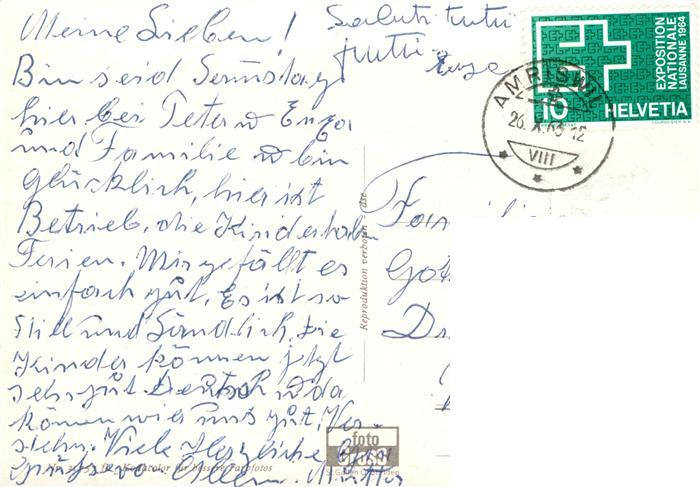 Meine Lieben!
Bin seid Samstag
hier bei Peter u Enza
und Familie u bin
glücklich, hier ist
Betrieb, die Kinder haben
Ferien. Mir gefällt es
einfach gut, Es ist so
Still und Ländlich, die
Kinder können jetzt
sehr gut Deutsch u da
können wir uns gut Ver-
stehn. Viele Herzliche
Grüsse von Allen. Mutter
Saluti tutti
tutti
Enza
AMRISWIL
26.X.63-12
VIII
EXPOSITION
NATIONALE
LAUSANNE 1964
10 HELVETIA
Reproduktion verboten
Fam
Got
foto
St. Gallen
Kodacolor für bessere Farbfotos